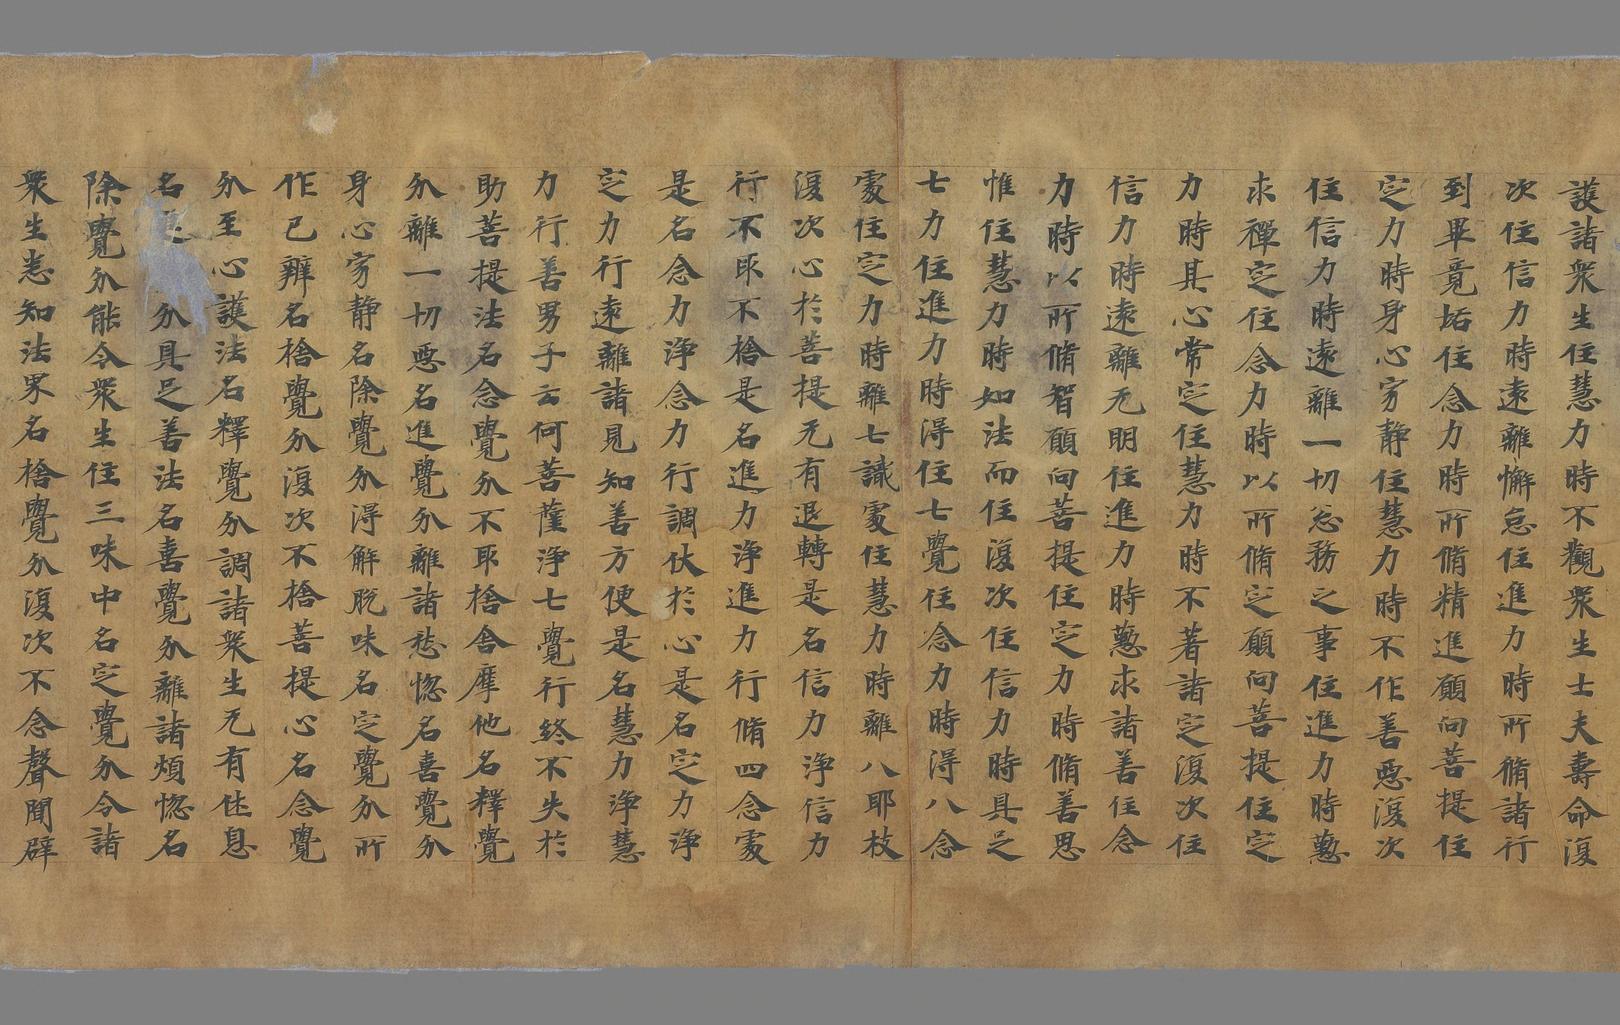 護諸衆生住慧力時不觀衆生士夫壽命復
次住信力時遠離懈怠住進力時所脩諸行
到畢竟垢住念力時所脩精進願向菩提住
定力時身心穷靜住慧力時不作善惡復次
住信力時遠離一切忩務之事住進力時懃
求禪定住念力時以所脩定願向菩提住定
力時其心常定住慧力時不著諸定復次住
信力時遠離无明住進力時懃求諸善住念
力時以所脩智願向菩提住定力時脩善思
惟住慧力時如法而住復次住信力時具足
七力住進力時得住七覺住念力時得八念
處住定力時離七識處住慧力時離八耶枝
復次心於菩提无有退轉是名信力浄信力
行不取不捨是名進力浄進力行脩四念處
是名念力浄念力行調伏於心是名定力浄
定力行遠離諸見知善方便是名慧力浄慧
力行善男子云何菩薩浄七覺行終不失於
助菩提法名念覺分不取捨舍摩他名釋覺
分離一切惡名進覺分離諸愁惱名喜覺分
身心穷靜名除覺分得解脫味名定覺分所
作已辦名捨覺分復次不捨菩提心名念覺
分至心護法名釋覺分調諸衆生无有休息
名分具足善法名喜覺分離諸煩惱名
除覺分能令衆生住三昧中名定覺分令諸
衆生悉知法界名捨覺分復次不念聲聞辟